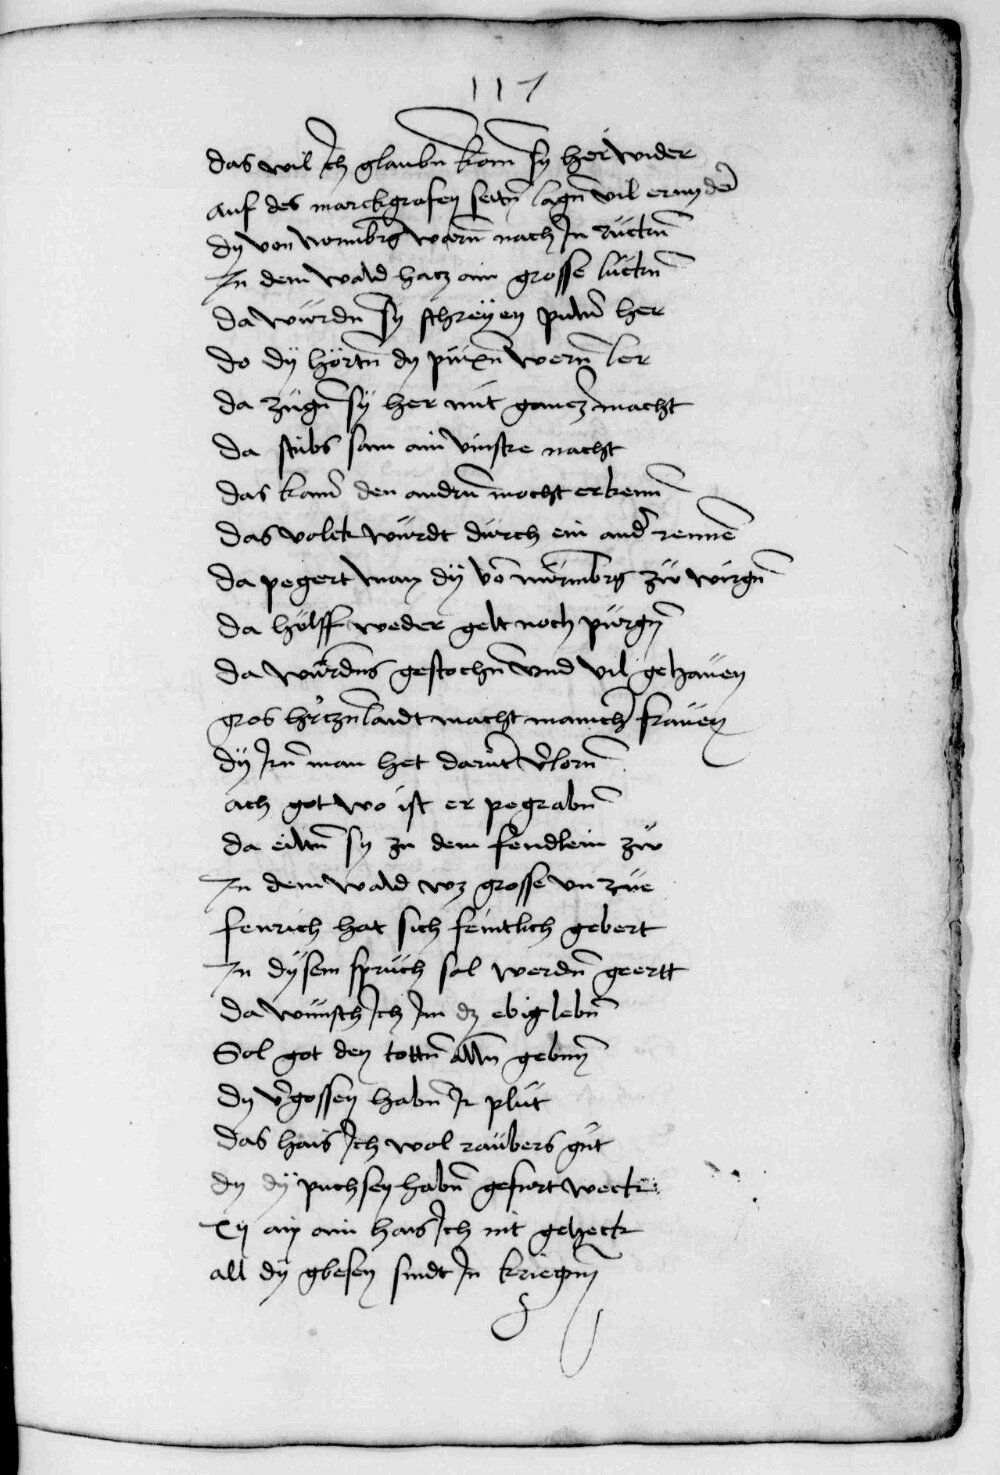 117
das wil Ich glaubn kom sy her wider
auf des marckgrafen seitn lagn vil ernyder
dy von nornbrg warn nach In rucktn
In dem wald hatz ain grosse luckn
da wurdn sy schreyen pulver her
do dy hörtn dy püxn wern ler
da zugn sy her mit gancz macht
da stubs sam ain vinstre nacht
das kainr den andrn mocht erkenn
das volck würdt durch ein andr rennen
da pegert man dy vo nürnbrg zw würgn
da hülff weder gelt noch pürgn
da würdns gestochn vnd vil gehauen
gros hrczn laidt macht manichr frauen
dy Irn man het darmt vrlorn
ach got wo ist er pegrabn
da eiltn sy zu dem fendlein zw
In dem wald wz grosse vn rue
fenrich hat sich feintlich gebert
In dysem spruch sol werdn geertt
da wünsch Ich Im dz ebig lebn
Sol got den tottn alln gebnn
dy vrgossen habn Ir plüt
das hais Ich wol raubers gut
dy dy puchsen habn gefurt weck
xij ain hais Ich nit geheck
all dy gbesen sindt In kriegnn